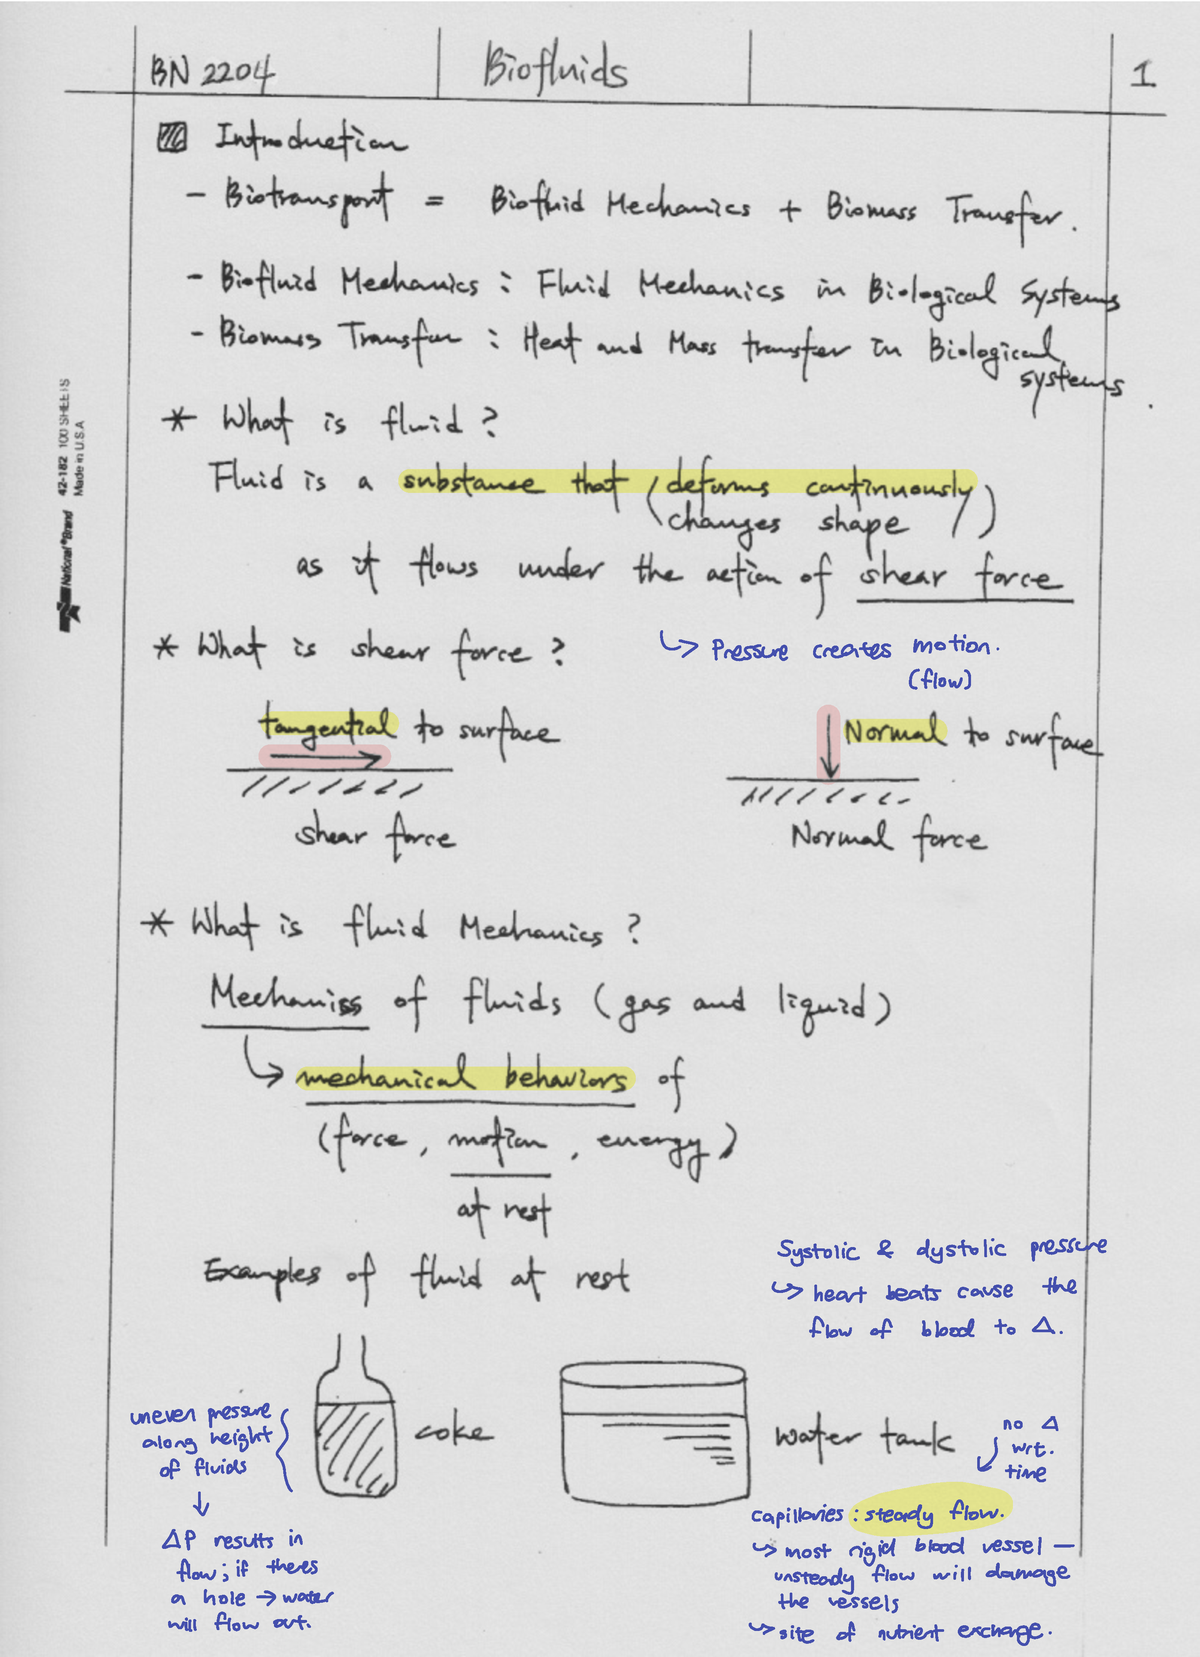 BN 2204 Biofluids 1
Introduction
- Biotransport = Biofluid Mechanics + Biomass Transfer.
- Biofluid Mechanics : Fluid Mechanics in Biological Systems
- Biomass Transfer : Heat and Mass transfer in Biological
systems.
42-182 100 SHEETS
Made in U.S.A
National®Brand
* What is fluid?
Fluid is a substance that (deforms continuously)
(changes shape)
as it flows under the action of shear force
↳ Pressure creates motion.
(flow)
* What is shear force?
tangential to surface
shear force
Normal to surface
Normal force
* What is fluid Mechanics?
Mechanics of fluids (gas and liquid)
↳ mechanical behaviors of
(force, motion, energy)
at rest
Examples of fluid at rest
Systolic & dystolic pressure
↳ heart beats cause the
flow of blood to Δ.
uneven pressure
along height
of fluids
↓
ΔP results in
flow; if theres
a hole → water
will flow out.
coke
water tank
no Δ
wrt.
time
capillaries : steady flow.
↳ most rigid blood vessel —
unsteady flow will damage
the vessels
↳ site of nutrient exchange.